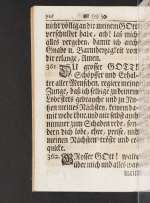 nicht völlig an dir meinem GOtt
verschuldet habe, ach! laß mich
alles vergeben, damit ich auch
Gnade u. Barmhertzigkeit von
dir erlange, Amen.
DU grosser GOTT!
Schöpffer und Erhal-
ter aller Menschen, regiere meine
Zunge, daß ich selbige zu deinem
Lobe stets gebrauche und zu Nu-
tzen meines Nächsten,
mit wehe thue, und mir selbst auch
nimmer zum Schaden rede, son-
dern dich lobe, ehre, preise, und
meinen Nächsten tröste und er-
quicke.
GRosser GOtt! walte
über mich und alles das